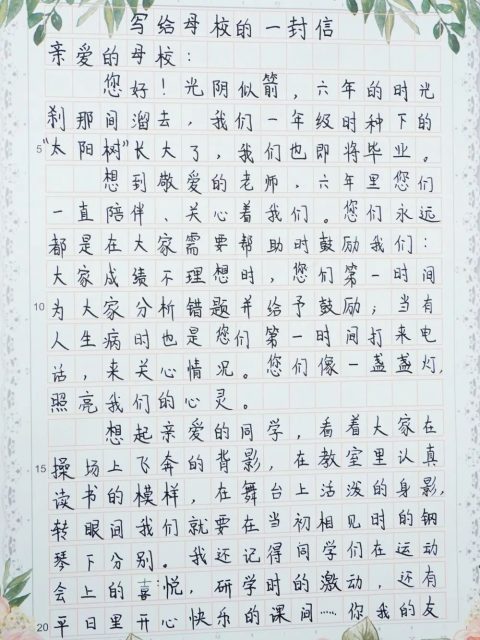 写给母校的一封信
亲爱的母校：
您好！光阴似箭，六年的时光
刹那间溜走，我们一年级时种下的
5 “太阳树”长大了，我们也即将毕业。
想到敬爱的老师，六年里您们
一直陪伴、关心着我们。您们永远
都是在大家需要帮助时鼓励我们：
大家成绩不理想时，您们第一时间
10 为大家分析错题并给予鼓励；当有
人生病时也是您们第一时间打来电
话，来关心情况。您们像一盏盏灯，
照亮我们的心灵。
想起亲爱的同学，看着大家在
15 操场上飞奔的背影，在教室里认真
读书的模样，在舞台上活泼的身影，
转眼间我们就要在当初相见时的钢
琴下分别。我还记得同学们在运动
会上的喜悦，研学时的激动，还有
20 平日里开心快乐的课间……你我的友